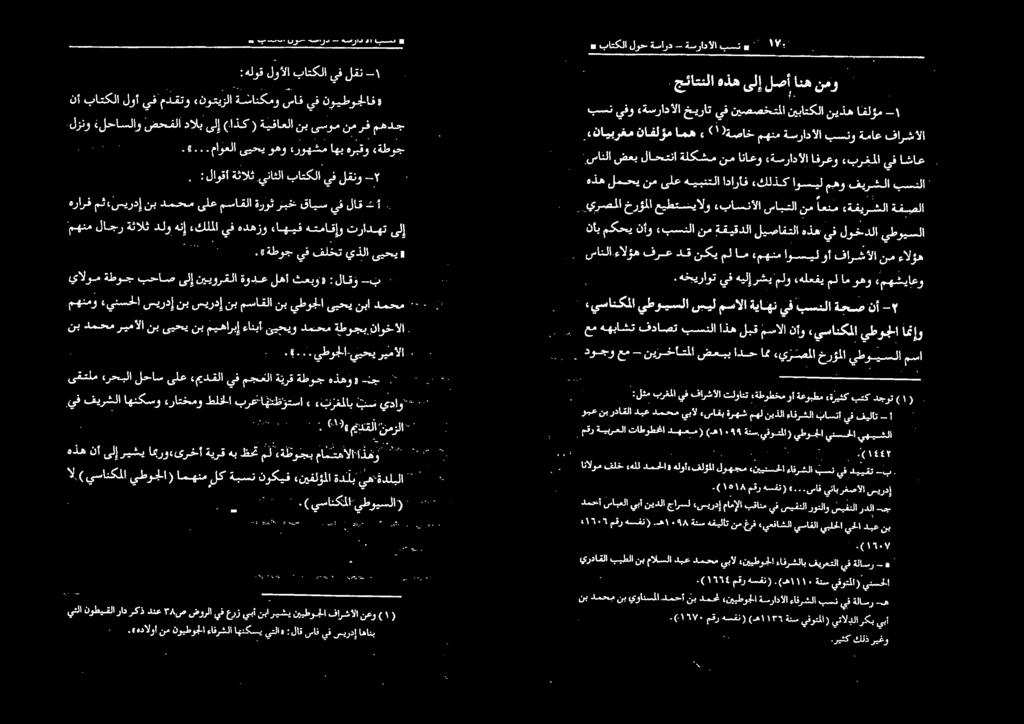 ١٧٠ ■ نسب الأدارسة - دراسة حول الكتاب ■
ومن هنا أصل إلى هذه النتائج
١- مؤلفا هذين الكتابين المتخصصين في تاريخ الأدارسة، وفي نسب
الأشراف عامة ونسب الأدارسة منهم خاصة(١)، هما مؤلفان مغربيان،
عاشا في المغرب، وعرفا الأدارسة، وعانا من مشكلة انتحال بعض الناس
النسب الشريف وهم ليسوا كذلك، فأرادا التنبيه على من يحمل هذه
الصفة الشريفة، منعاً من التباس الأنساب، ولايستطيع المؤرخ المصري
السيوطي الدخول في هذه التفاصيل الدقيقة من النسب، وأن يحكم بأن
هؤلاء من الأشراف أو ليسوا منهم، ما لم يكن قد عرف هؤلاء الناس
وعايشهم، وهو ما لم يفعله، ولم يشر إليه في تواريخه.
٢- أن صحة النسب في نهاية الاسم ليس السيوطي المكناسي،
وإنما الجوطي المكناسي، وأن الاسم قبل هذا النسب تصادف تشابهه مع
اسم السيوطي المؤرخ المصري، مما حدا ببعض المتأخرين - مع وجود
(١) توجد كتب كثيرة، مطبوعة أو مخطوطة، تناولت الأشراف في المغرب مثل:
أ - تأليف في أنساب الشرفاء الذين لهم شهرة بفاس، لأبي محمد عبد القادر بن عبو
الشبيهي الحسني الجوطي (المتوفي سنة ١٠٩٩هـ) (معهد المخطوطات العربية رقم
١٤٤٢).
ب- تقييد في نسب الشرفاء الحسنيين، مجهول المؤلف، أوله «الحمد لله، خلف مولانا
إدريس الأصغر باني فاس...» (نفسه رقم ١٥١٨).
جـ- الدر النفيس والنور النفيس في مناقب الإمام إدريس، لسراج الدين أبي العباس أحمد
بن عبد الحي الحلبي الفاسي الشافعي، فرغ من تأليفه سنة ١٠٩٨هـ. (نفسه رقم ١٦٠٦،
١٦٠٧).
■ - رسالة في التعريف بالشرفاء الجوطيين، لأبي محمد عبد السلام بن الطيب القادري
الحسني (المتوفي سنة ١١١٠هـ). (نفسه رقم ١٦٦٤).
هـ- رسالة في نسب الشرفاء الأدارسة الجوطيين، لمحمد بن أحمد المسناوي بن محمد بن
أبي بكر الدلائي (المتوفي سنة ١١٣٦هـ) (نفسه رقم ١٦٧٠).
وغير ذلك كثير.
■ نسب الأدارسة - دراسة حول الكتاب ■
١- نقل في الكتاب الأول قوله:
«فالجوطيون في فاس ومكناسة الزيتون، وتقدم في أول الكتاب أن
جدهم فر من موسى بن العافية (كذا) إلى بلاد الفحص والساحل، ونزل
جوطة، وقبره بها مشهور، وهو يحيى العوام...».
٢- ونقل في الكتاب الثاني ثلاثة أقوال:
أ - قال في سياق خبر ثورة القاسم على محمد بن إدريس، ثم فراره
إلى تهدارت وإقامته فيها، وزهده في الملك، إنه ولد ثلاثة رجال منهم
■ يحيى الذي تخلف في جوطة».
ب- وقال: «وبعث أهل عدوة القرويين إلى صاحب جوطة مولاي
محمد ابن يحيى الجوطي بن القاسم بن إدريس بن إدريس الحسني، ومنهم
الأخوان بجوطة محمد ويحيى أبناء إبراهيم بن يحيى بن الأمير محمد بن
الأمير يحيى الجوطي...».
جـ- «وهذه جوطة قرية العجم في القديم، على ساحل البحر، ملتقى
وادي سب بالمغرب، استوطنها عرب الخلط ومختار، وسكنها الشريف في
الزمن القديم»(١).
وهذا الاهتمام بجوطة، لم تحظ به قرية أخرى، وربما يشير إلى أن هذه
البلدة هي بلدة المؤلفين، فيكون نسبة كل منهما (الجوطي المكناسي) لا
(السيوطي المكناسي).
(١) وعن الأشراف الجوطيين يشير ابن أبي زرع في الروض ص٣٨ عند ذكر دار القيطون التي
بناها إدريس في فاس قال: «التي يسكنها الشرفاء الجوطيون من أولاده».